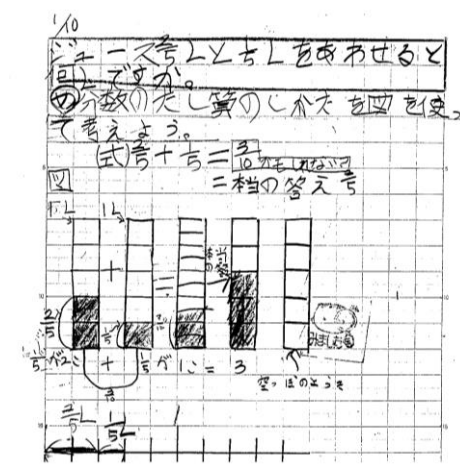 1/10
ジュース2/5Lと1/5Lをあわせると
何Lですか。
め 分数のたし算のしかたを図を使っ
て考えよう。
(式)2/5+1/5=3/10かもしれない
=本当の答え3/5
図
1L 1L
+ =
本当の答え
2/5 1/5
1/5が2こ + 1/5が1こ = 3
空っぽのようき
みました
2/5L 1/5L